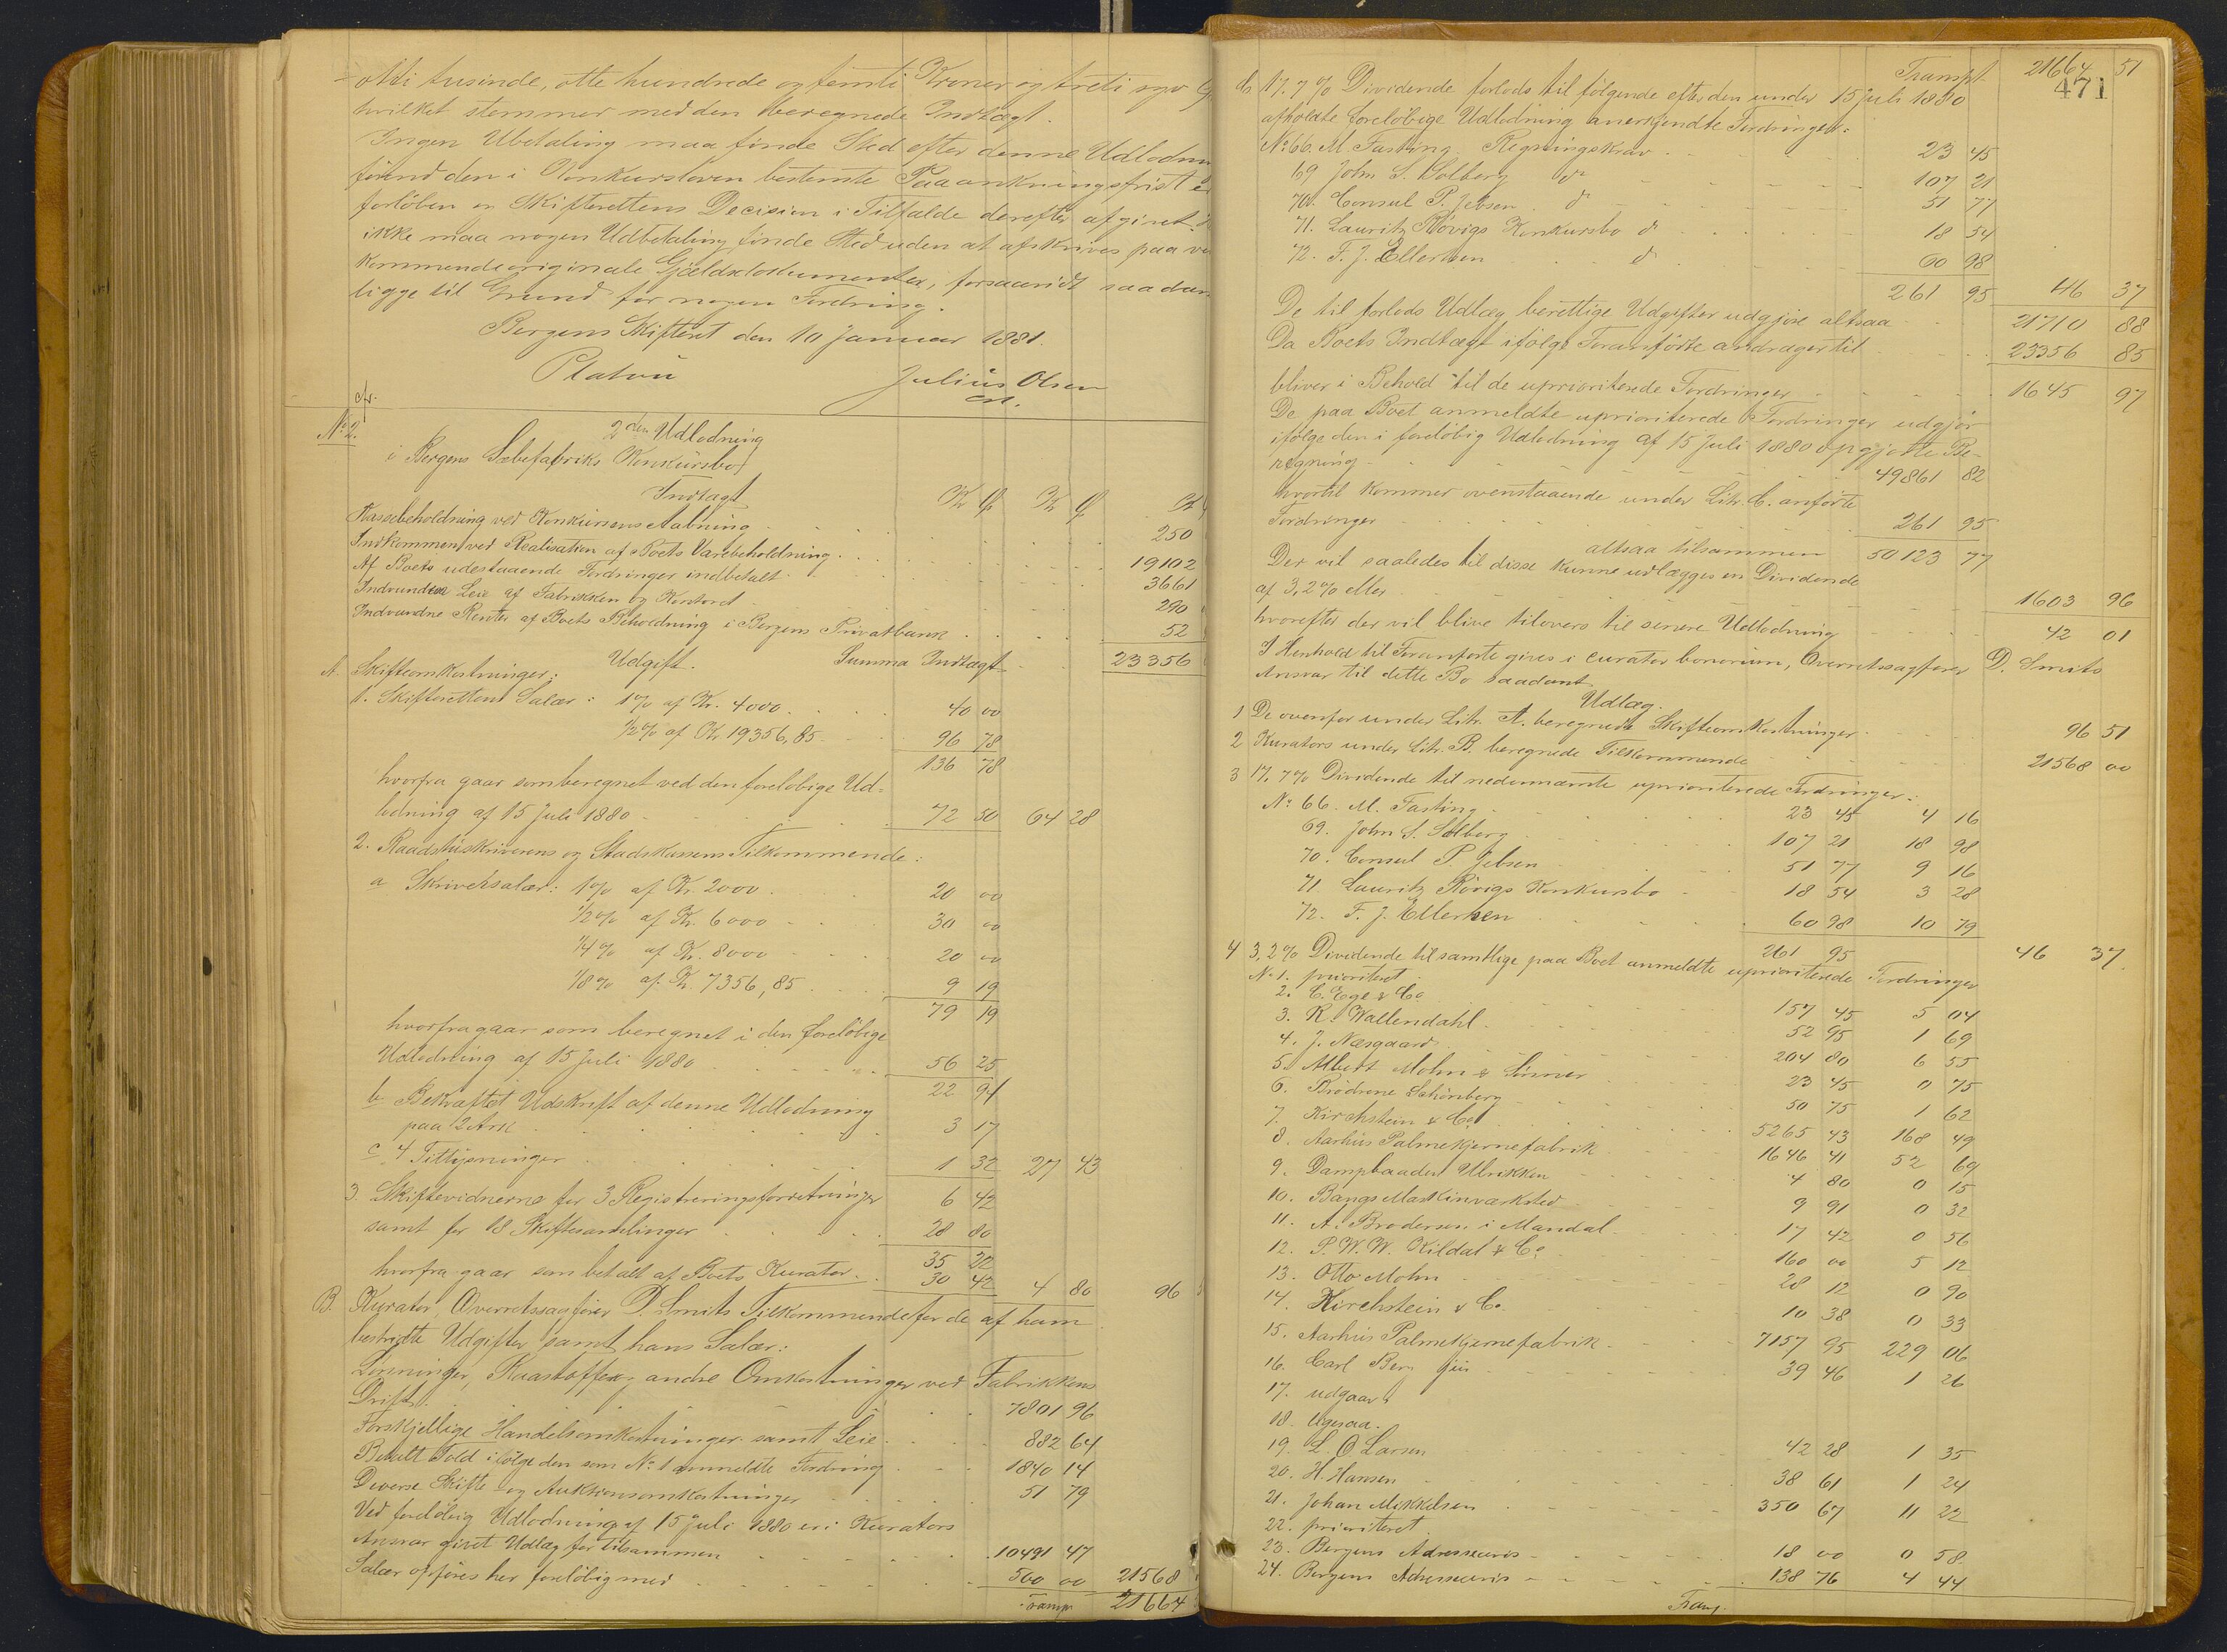 otti tusinde, otte hundrede og femti Kroner og treti syv
hvilket stemmer med den beregnede Indtægt.
Ingen Ubetaling maa finde Sted efter denne Udlodnin
førend den i Konkursloven bestemte Paaankningsfrist er
forløben og Skifterettens Decision i Tilfælde derefter afgivet
ikke maa nogen Udbetaling finde Sted uden at afskrives paa ved
kommende originale Gjældsdokumenter, forsaavidt saadan
ligge til Grund for nogen Fordring.
Bergens Skifteret den 10 Januar 1881.
Platou Julius Olsen
cfr. cst.
No 2. 2den Udlodning
i Bergens Sæbefabriks Konkursbo
Indtægt Kr Ø Kr Ø Kr
Kassebeholdning ved Konkursens Aabning 250
Indkommen ved Realisation af Boets Varebeholdning 19102
Af Boets udestaaende Fordringer indbetalt 3661
Indvunden Leie af Fabrikken og Kontoret 290
Indvundne Renter af Boets Beholdning i Bergens Privatbank 52
Summa Indtægt 23356
Udgift.
A. Skifteomkostninger:
1. Skifterettens Salær: 1% af Kr. 4000. 40 00
1/2% af Kr 19356,85 96 78
136 78
hvorfra gaar som beregnet ved den foreløbige Ud-
lodning af 15 Juli 1880 72 50 64 28
2. Raadstuskriverens og Stadskassens Tilkommende:
a Skriversalær: 1% af Kr. 2000. 20 00
1/2% af Kr. 6000 30 00
1/4% af Kr. 8000 20 00
1/8% af Kr. 7356,85 9 19
79 19
hvorfra gaar som beregnet i den foreløbige
Udlodning af 15 Juli 1880 56 25
22 94
b Bekræftet Udskrift af denne Udlodning
paa 2 Ark 3 17
c 4 Tillysninger 1 32 27 43
3. Skiftevidnerne for 3 Registreringsforretninger 6 42
samt for 18 Skiftesamlinger 28 80
35 22
hvorfra gaar som betalt af Boets Kurator. 30 42 4 80 96
B. Kurator, Overretssagfører D. Smits Tilkommende for de af ham
bestridte Udgifter samt hans Salær:
Lønninger, Raastoffer, andre Omkostninger ved Fabrikkens
Drift 7801 96
Forskjellige Handelsomkostninger samt Leie 882 64
Betalt Told ifølge den som No 1 anmeldte Fordring 1840 14
Diverse Skifte- og Auktionsomkostninger 51 79
Ved foreløbig Udlodning af 15 Juli 1880 er i Kurators
Ansvar givet Udlæg for tilsammen 10491 47
Salær opføres her foreløbig med 500 00 21568
Transp. 21664
Transpt. 21664 51
471
C. 17.7% Dividende forlods til følgende efter den under 15 Juli 1880
afholdte foreløbige Udlodning anerkjendte Fordringer:
No 66. M. Fasting. Regningskrav 23 45
69 John S. Solberg do 107 21
70. Consul P. Jebsen do 51 77
71. Lauritz Rövigs Konkursbo do 18 54
72. F. J. Ellerhsen do 60 98
261 95 46 37
De til forlods Udlæg berettige Udgifter udgjøre altsaa 21710 88
Da Boets Indtægt ifølge Foranførte andrager til 23356 85
bliver i Behold til de uprioriterede Fordringer 1645 97
De paa Boet anmeldte uprioriterede Fordringer udgjør
ifølge den i foreløbig Udlodning af 15 Juli 1880 opgjorte Be-
regning 49861 82
hvortil kommer ovenstaaende under Litr. C. anførte
Fordringer 261 95
altsaa tilsammen 50123 77
Der vil saaledes til disse kunne udlægges en Dividende
af 3,2% eller 1603 96
hvorefter der vil blive tilovers til senere Udlodning 42 01
I Henhold til Foranførte gives i curator bonorum, Overretssagfører D. Smits
Ansvar til dette Bo saadant
Udlæg.
1 De ovenfor under Litr. A. beregnede Skifteomkostninger 96 51
2 Kurators under Litr. B. beregnede Tilkommende 21568 00
3 17.7% Dividende til nedennævnte uprioriterede Fordringer:
No 66. M. Fasting 23 45 4 16
69. John S. Solberg 107 21 18 98
70. Consul P. Jebsen 51 77 9 16
71. Lauritz Rövigs Konkursbo 18 54 3 28
72. F. J. Ellerhsen 60 98 10 79
261 95 46 37
4 3,2% Dividende til samtlige paa Boet anmeldte uprioriterede Fordringer
No 1. prioriteret
2. C. Ege & Co 157 45 5 04
3. R. Wallendahl 52 95 1 69
4. J. Næsgaard 204 80 6 55
5. Albert Mohn & Sönner 23 45 0 75
6. Brödrene Schönberg 50 75 1 62
7. Kirchstein & Co 5265 43 168 49
8. Aarhus Palmekjernefabrik 1646 41 52 69
9. Dampbaaden Ulrikken 4 80 0 15
10. Bangs Maskinværksted 9 91 0 32
11. A. Brodersen i Mandal 17 42 0 56
12. P. W. W. Kildal & Co 160 00 5 12
13. Otto Mohn 28 12 0 90
14. Kirchstein & Co 10 38 0 33
15. Aarhus Palmekjernefabrik 7157 95 229 06
16. Carl Berg jun 39 46 1 26
17. udgaar
18. ligesaa.
19. L. O. Larsen 42 28 1 35
20. H. Hansen 38 61 1 24
21. Johan Mikkelsen 350 67 11 22
22. prioriteret
23. Bergens Adresseavis 18 00 0 58
24. Bergens Adresseavis 138 76 4 44
Transp.